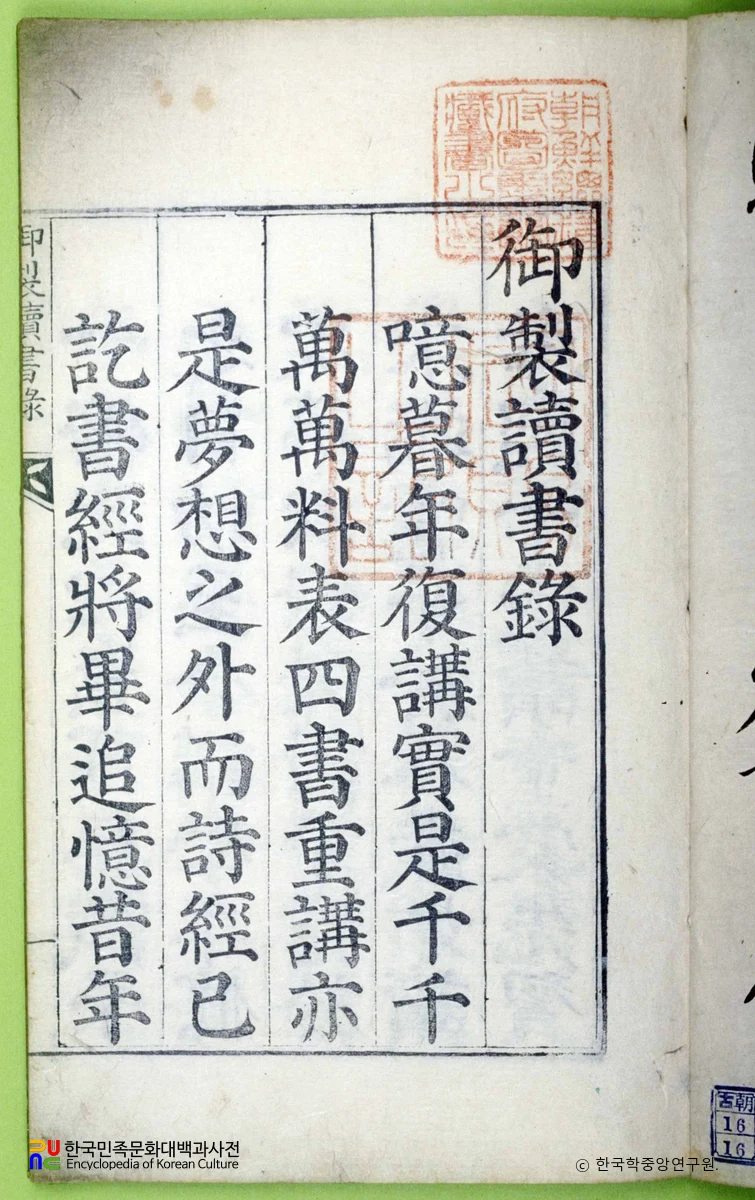 御製讀書錄
噫暮年復講實是千千
萬萬料表四書重講亦
是夢想之外而詩經已
訖書經將畢追憶昔年
御製讀書錄
朝鮮總督府圖書館藏書之印
古朝
16
16
한국민족문화대백과사전
Encyclopedia of Korean Culture
ⓒ 한국학중앙연구원.